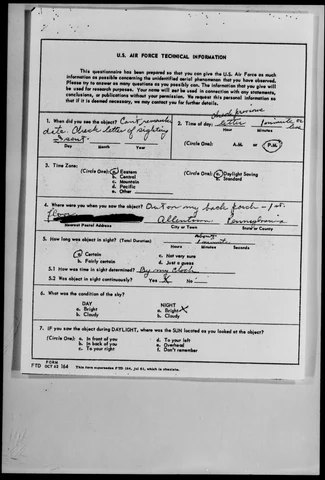 U.S. AIR FORCE TECHNICAL INFORMATION
This questionnaire has been prepared so that you can give the U.S. Air Force as much
information as possible concerning the unidentified aerial phenomenon that you have observed.
Please try to answer as many questions as you possibly can. The information that you give will
be used for research purposes. Your name will not be used in connection with any statements,
conclusions, or publications without your permission. We request this personal information so
that if it is deemed necessary, we may contact you for further details.
Check previous
1. When did you see the object? Can't remember
date. Check letter of sighting
I sent.
Day Month Year
2. Time of day: letter 1 minute or
less
Hour Minutes
(Circle One): A.M. or P.M.
3. Time Zone:
(Circle One): a. Eastern
b. Central
c. Mountain
d. Pacific
e. Other
(Circle One): a. Daylight Saving
b. Standard
4. Where were you when you saw the object? Out on my back porch - 1st.
floor Allentown Pennsylvania
Nearest Postal Address City or Town State or County
5. How long was object in sight? (Total Duration) About 1 minute
Hours Minutes Seconds
a. Certain c. Not very sure
b. Fairly certain d. Just a guess
5.1 How was time in sight determined? By my clock
5.2 Was object in sight continuously? Yes X No
6. What was the condition of the sky?
DAY NIGHT
a. Bright a. Bright X
b. Cloudy b. Cloudy
7. IF you saw the object during DAYLIGHT, where was the SUN located as you looked at the object?
(Circle One): a. In front of you d. To your left
b. In back of you e. Overhead
c. To your right f. Don't remember
FORM
FTD OCT 62 164 This form supersedes FTD 164, Jul 61, which is obsolete.